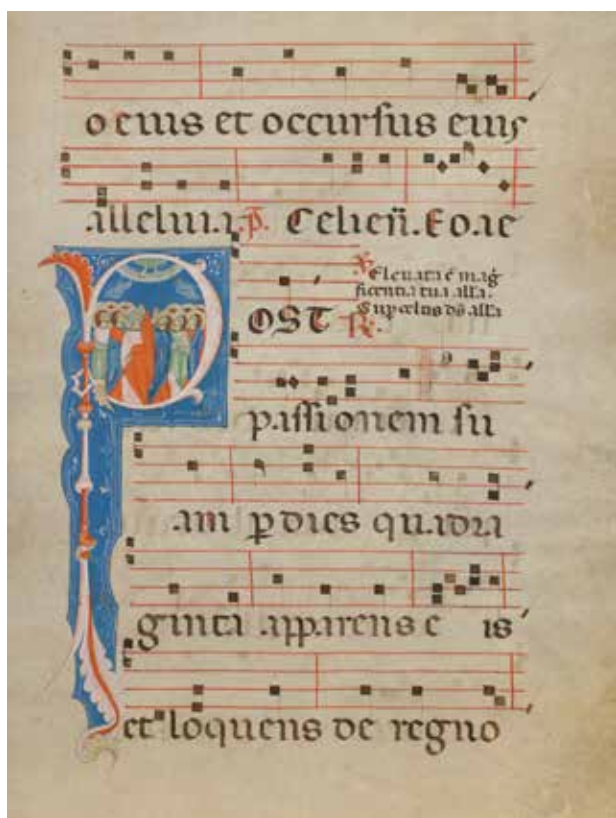 o eius et occursus eius
alleluia. p. Celi en̄. Euouae
℣ Eleuata ē mag
nificentia tua alła.
Sup celos d̄s alła
POST ℟.
passionem su
am p dies quadra
ginta apparens e is
et loquens de regno